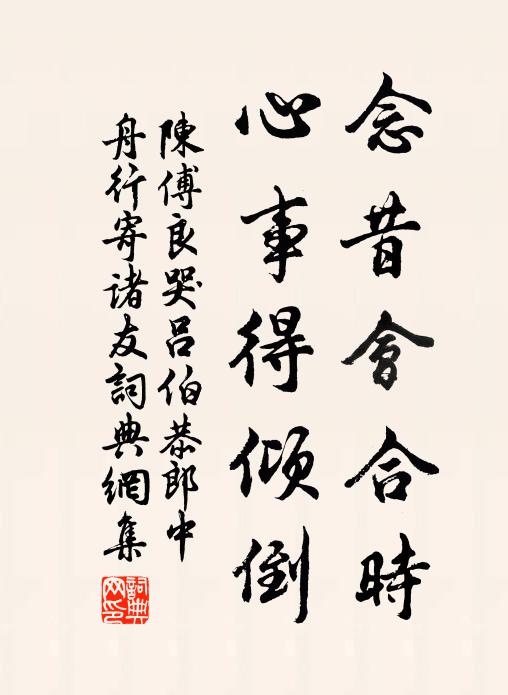 念昔會合時
心事得傾倒
陳傅良哭呂伯恭郎中
舟行寄諸友詞典網集
詞典網印